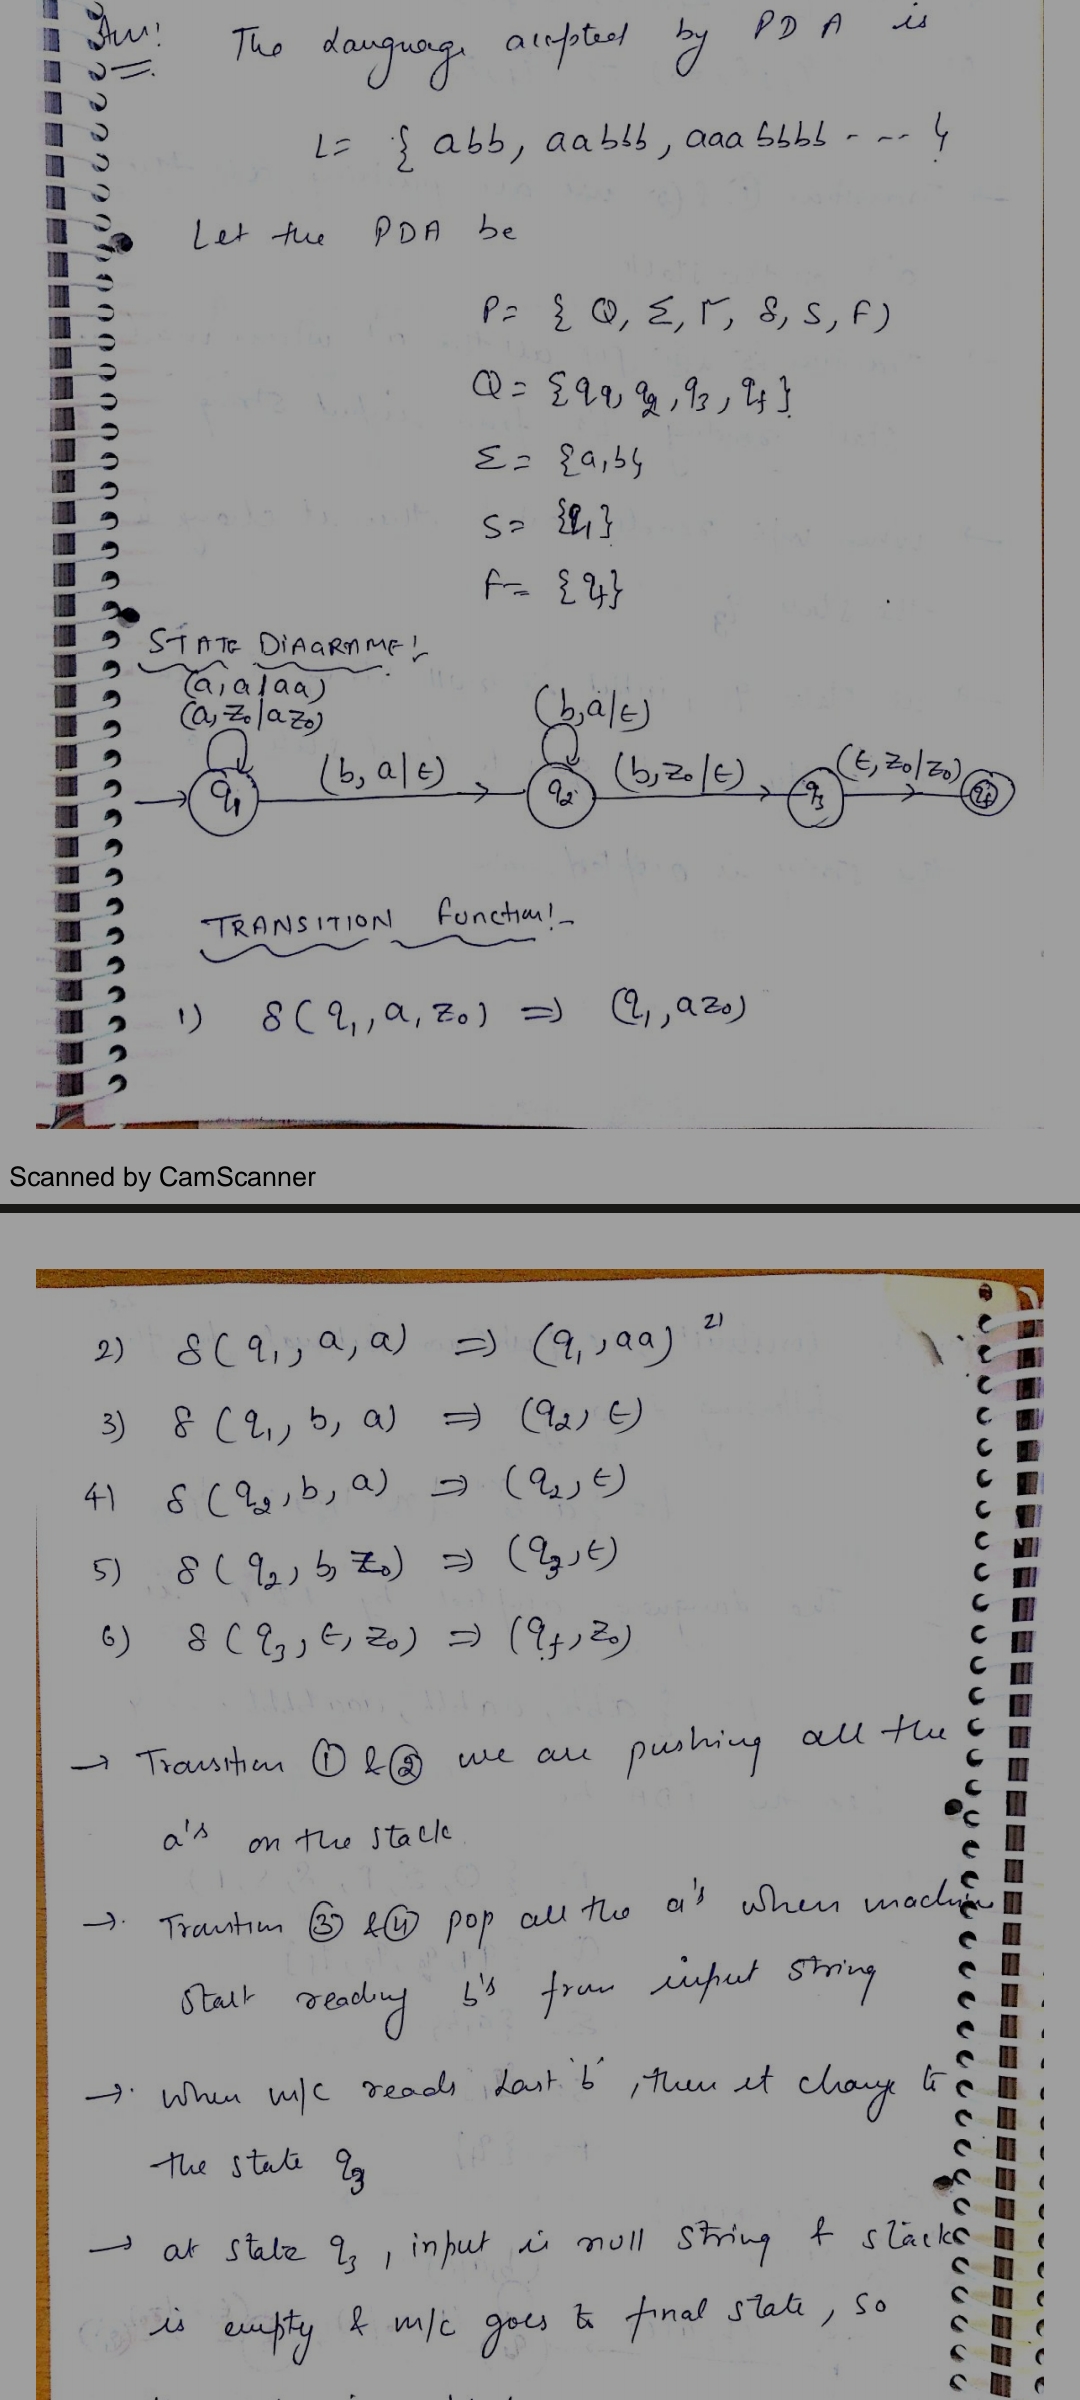 Ans:
The Language accepted by PDA is
L= { abb, aabbb, aaabbbb - - - }
Let the PDA be
P= { Q, Σ, Γ, δ, S, F)
Q= {q1, q2, q3, qf}
Σ= {a,b}
S= {q1}
F= {qf}
STATE DIAGRAME:-
(a,a/aa)
(a,z0/az0)
(b,a/ε)
(b, a/ε)
(b,z0/ε)
(ε,z0/z0)
q1
q2
q3
qf
TRANSITION function:-
1) δ( q1, a, z0) => (q1, az0)
Scanned by CamScanner
21
2) δ( q1, a, a) => (q1, aa)
3) δ (q1, b, a) => (q2, ε)
4) δ (q2, b, a) => (q2, ε)
5) δ( q2, b, z0) => (q3, ε)
6) δ (q3, ε, z0) => (qf, z0)
→ Transition ① & ② we are pushing all the
a's on the stack.
→. Tranition ③ & ④ pop all the a's when machine
start reading b's from input string
→. when m/c reads Last 'b', then it change to
the state q3
→ at state q3, input is null string & stack
is empty & m/c goes to final state, so